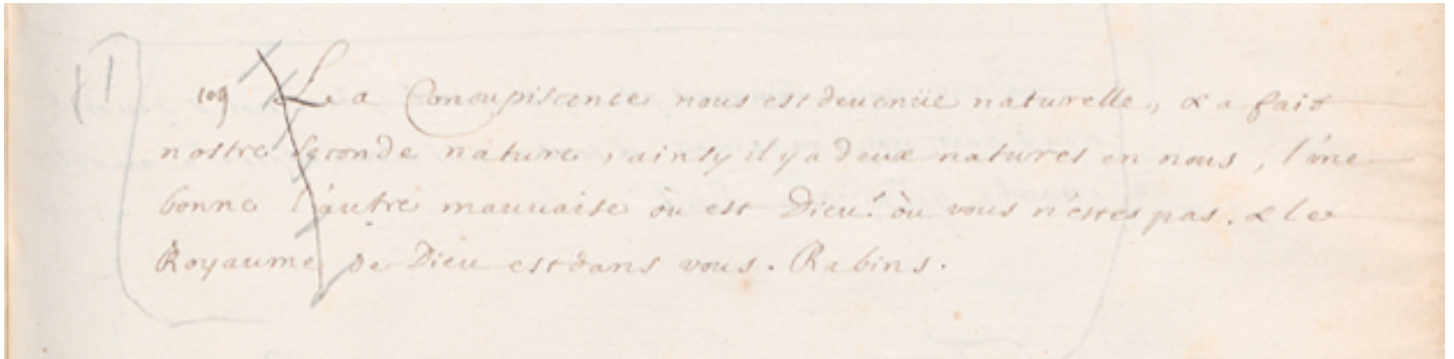 109 La Concupiscence nous est deuenüe naturelle, & a fait
nostre seconde nature, ainsy il y a deux natures en nous, l'une
bonne l'autre mauuaise où est Dieu? où vous n'estes pas. & le
Royaume de Dieu est dans vous. Rabins.